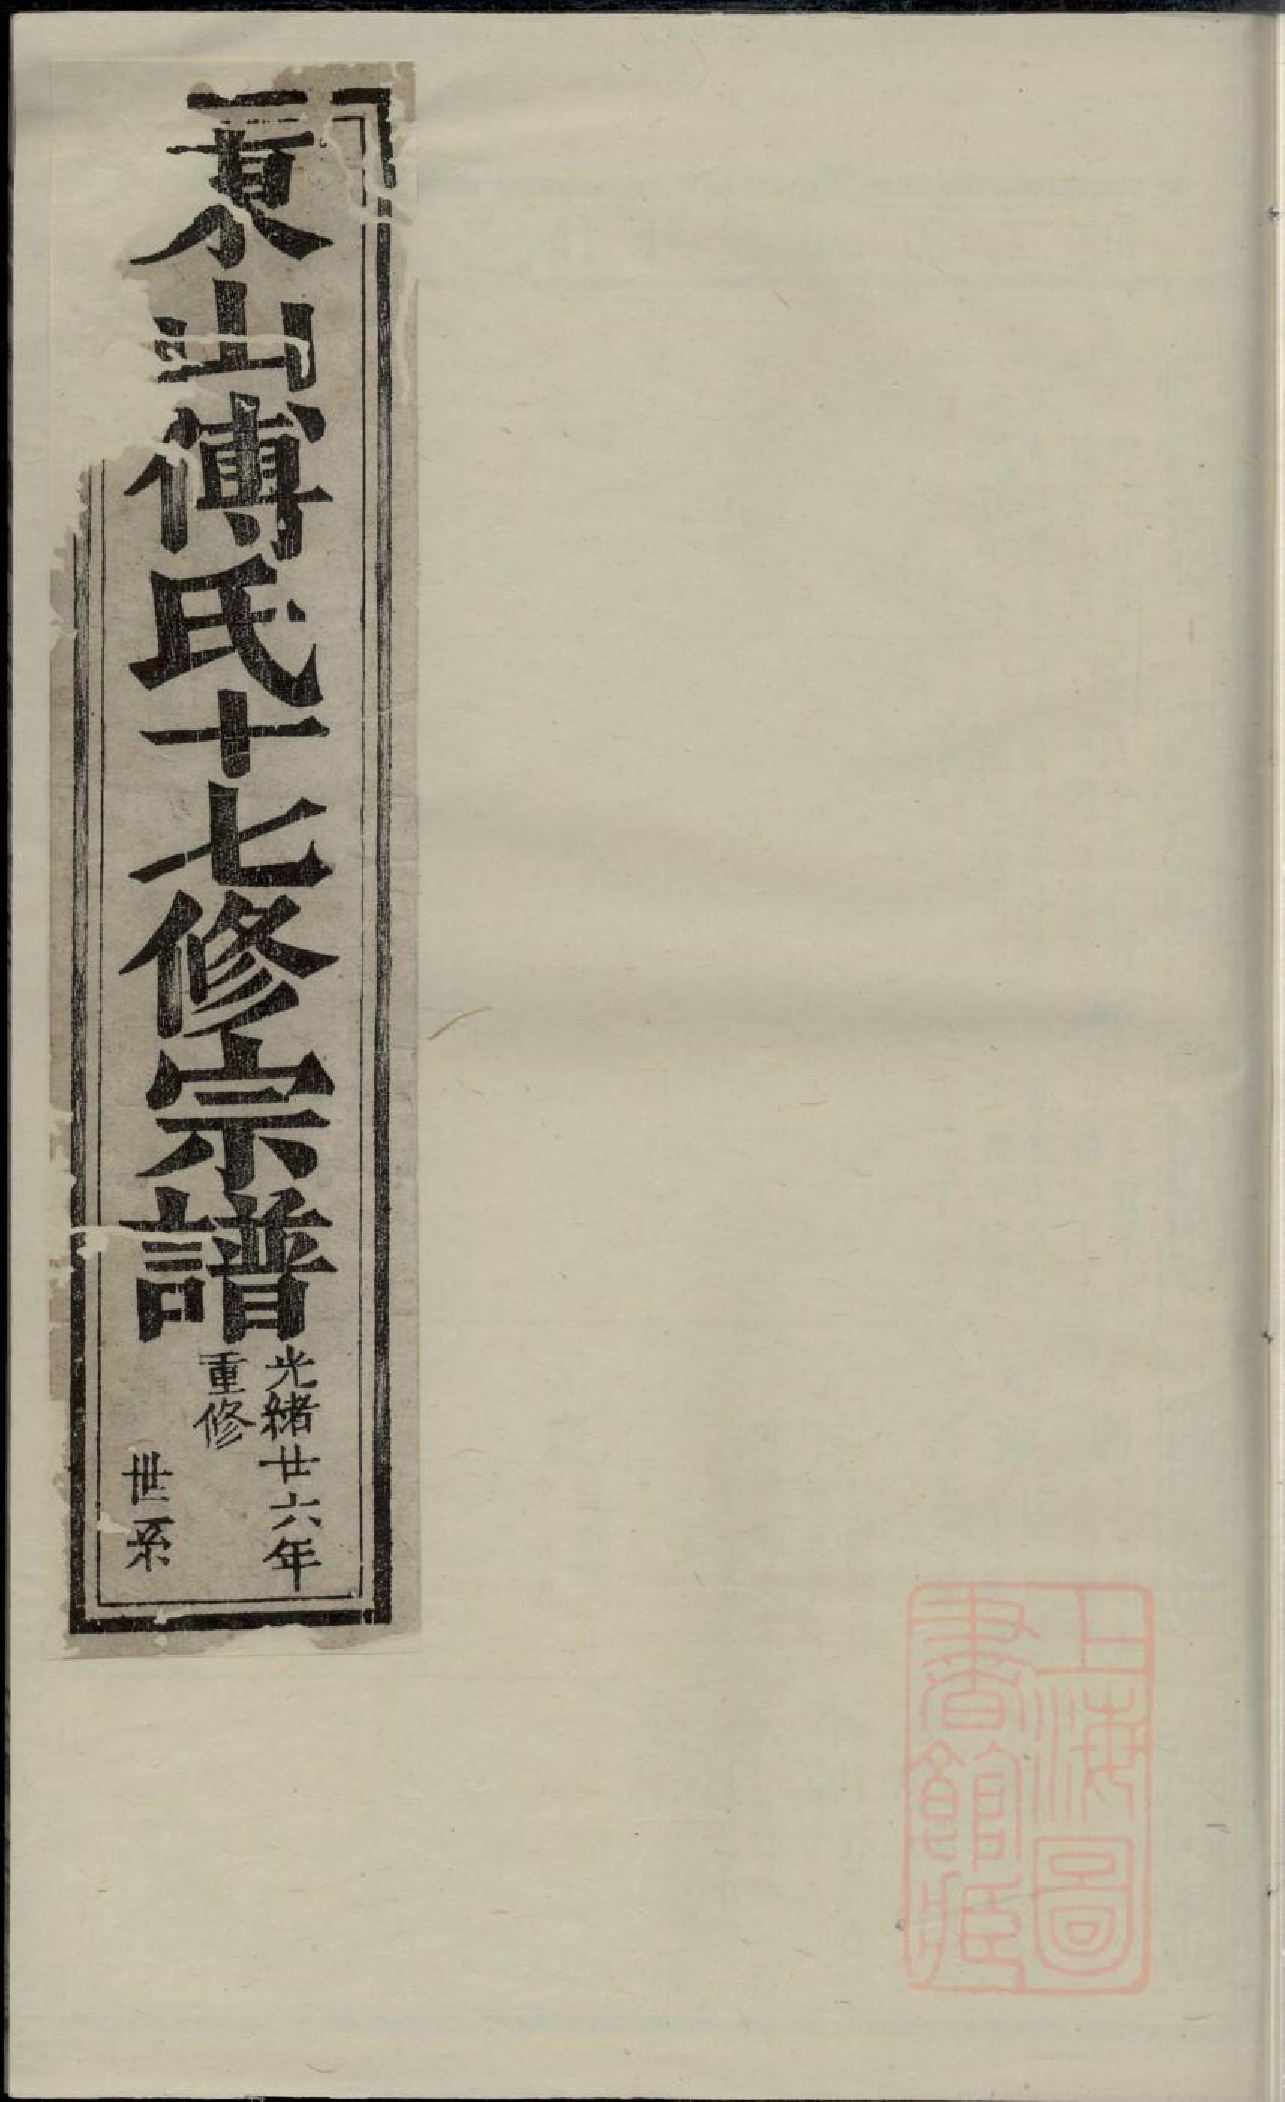 東山傅氏十七修宗譜
光緒廿六年
重修
世系
上海圖
書館藏